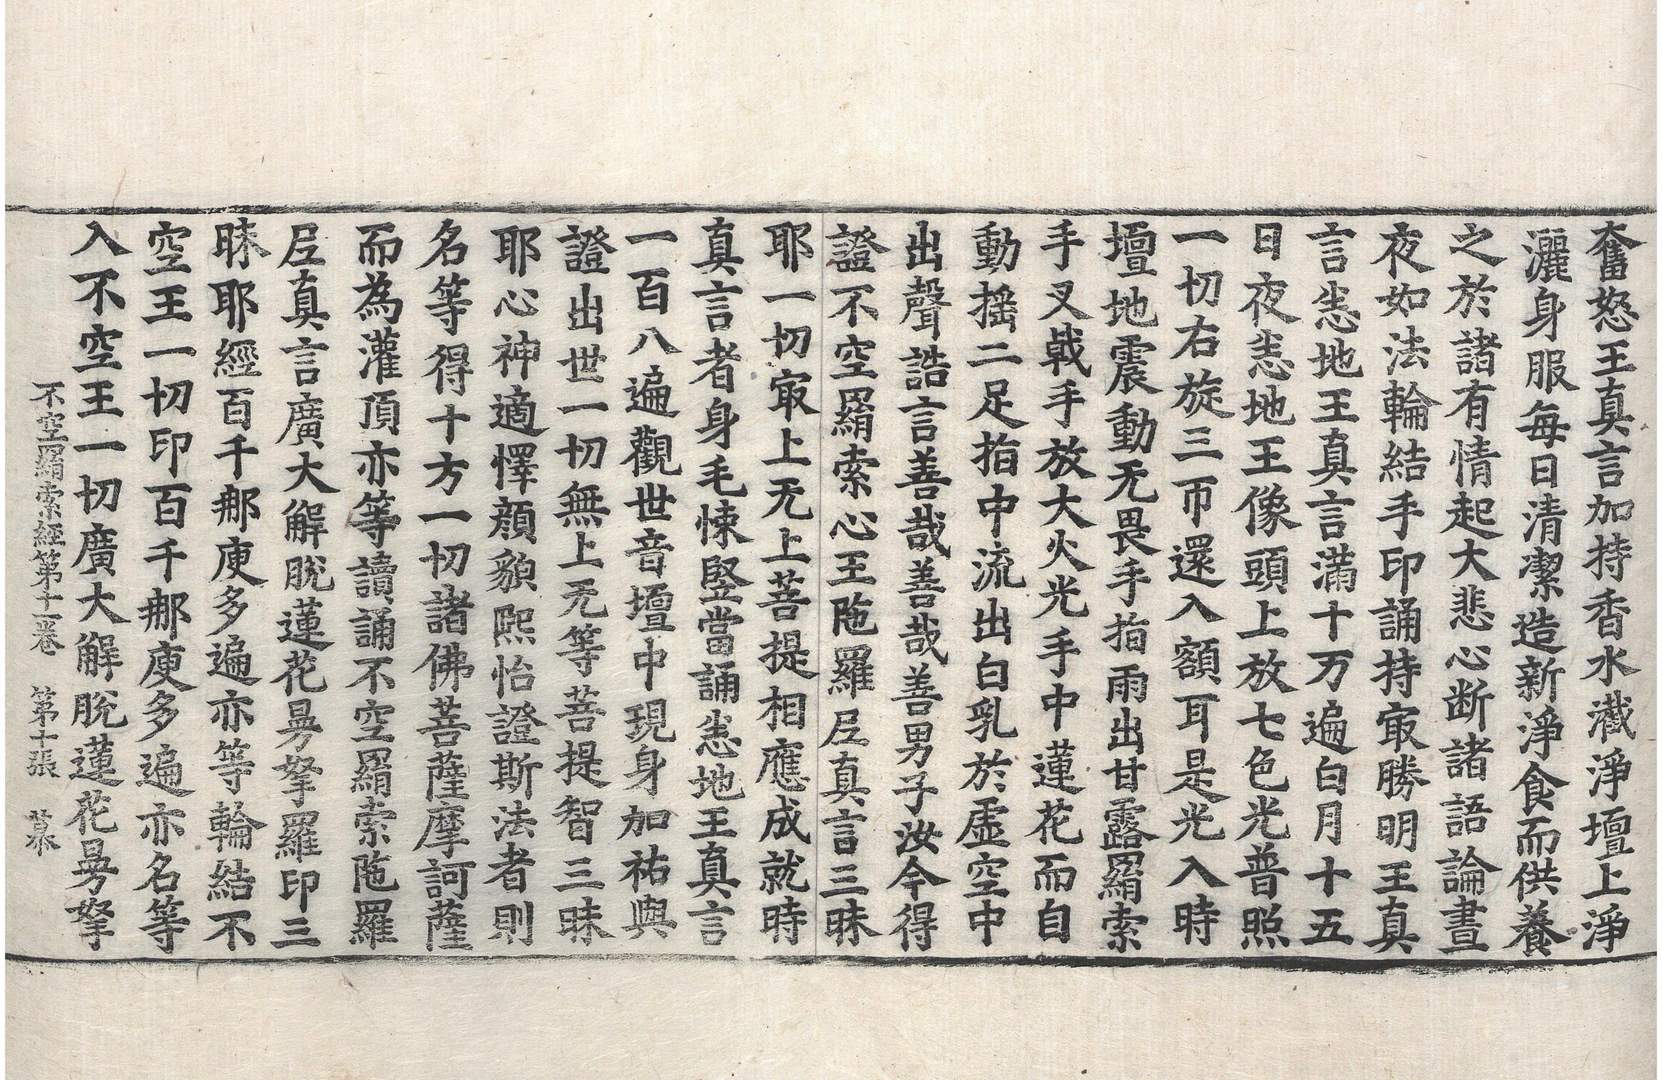 奮怒王真言加持香水灑淨壇上淨
灑身服每日清潔造新淨食而供養
之於諸有情起大悲心断諸語論晝
夜如法輪結手印誦持㝡勝明王真
言悉地王真言滿十万遍白月十五
日夜悉地王像頭上放七色光普照
一切右旋三帀還入額耳是光入時
壇地震動无畏手指雨出甘露羂索
手叉戟手放大火光手中蓮花而自
動揺二足指中流出白乳於虚空中
出聲誥言善哉善哉善男子汝今得
證不空羂索心王陁羅尼真言三昧
耶一切㝡上无上菩提相應成就時
真言者身毛悚竪當誦悉地王真言
一百八遍觀世音壇中現身加祐與
證出世一切無上无等菩提智三昧
耶心神適懌顔貌熙怡證斯法者則
名等得十方一切諸佛菩薩摩訶薩
而為灌頂亦等讀誦不空羂索陁羅
尼真言廣大解脫蓮花曼拏羅印三
昧耶經百千那庾多遍亦等輪結不
空王一切印百千那庾多遍亦名等
入不空王一切廣大解脫蓮花曼拏
不空羂索經第十一卷 第十張 慕